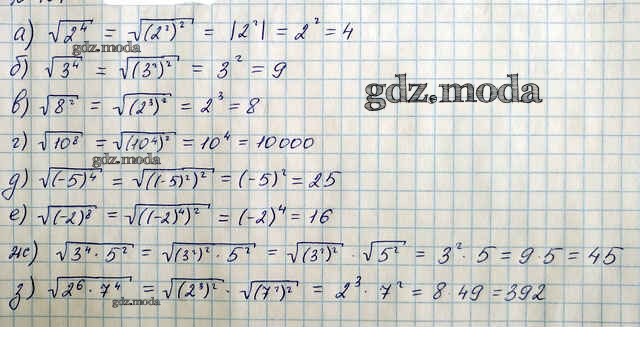 а) √2⁴ = √(2²)² = |2²| = 2² = 4
gdz.moda
б) √3⁴ = √(3²)² = 3² = 9
gdz.moda
в) √8² = √(2³)² = 2³ = 8
г) √10⁸ = √(10⁴)² = 10⁴ = 10000
gdz.moda
д) √(-5)⁴ = √((-5)²)² = (-5)² = 25
е) √(-2)⁸ = √((-2)⁴)² = (-2)⁴ = 16
ж) √3⁴ · 5² = √(3²)² · 5² = √(3²)² · √5² = 3² · 5 = 9 · 5 = 45
з) √2⁶ · 7⁴ = √(2³)² · √(7²)² = 2³ · 7² = 8 · 49 = 392
gdz.moda